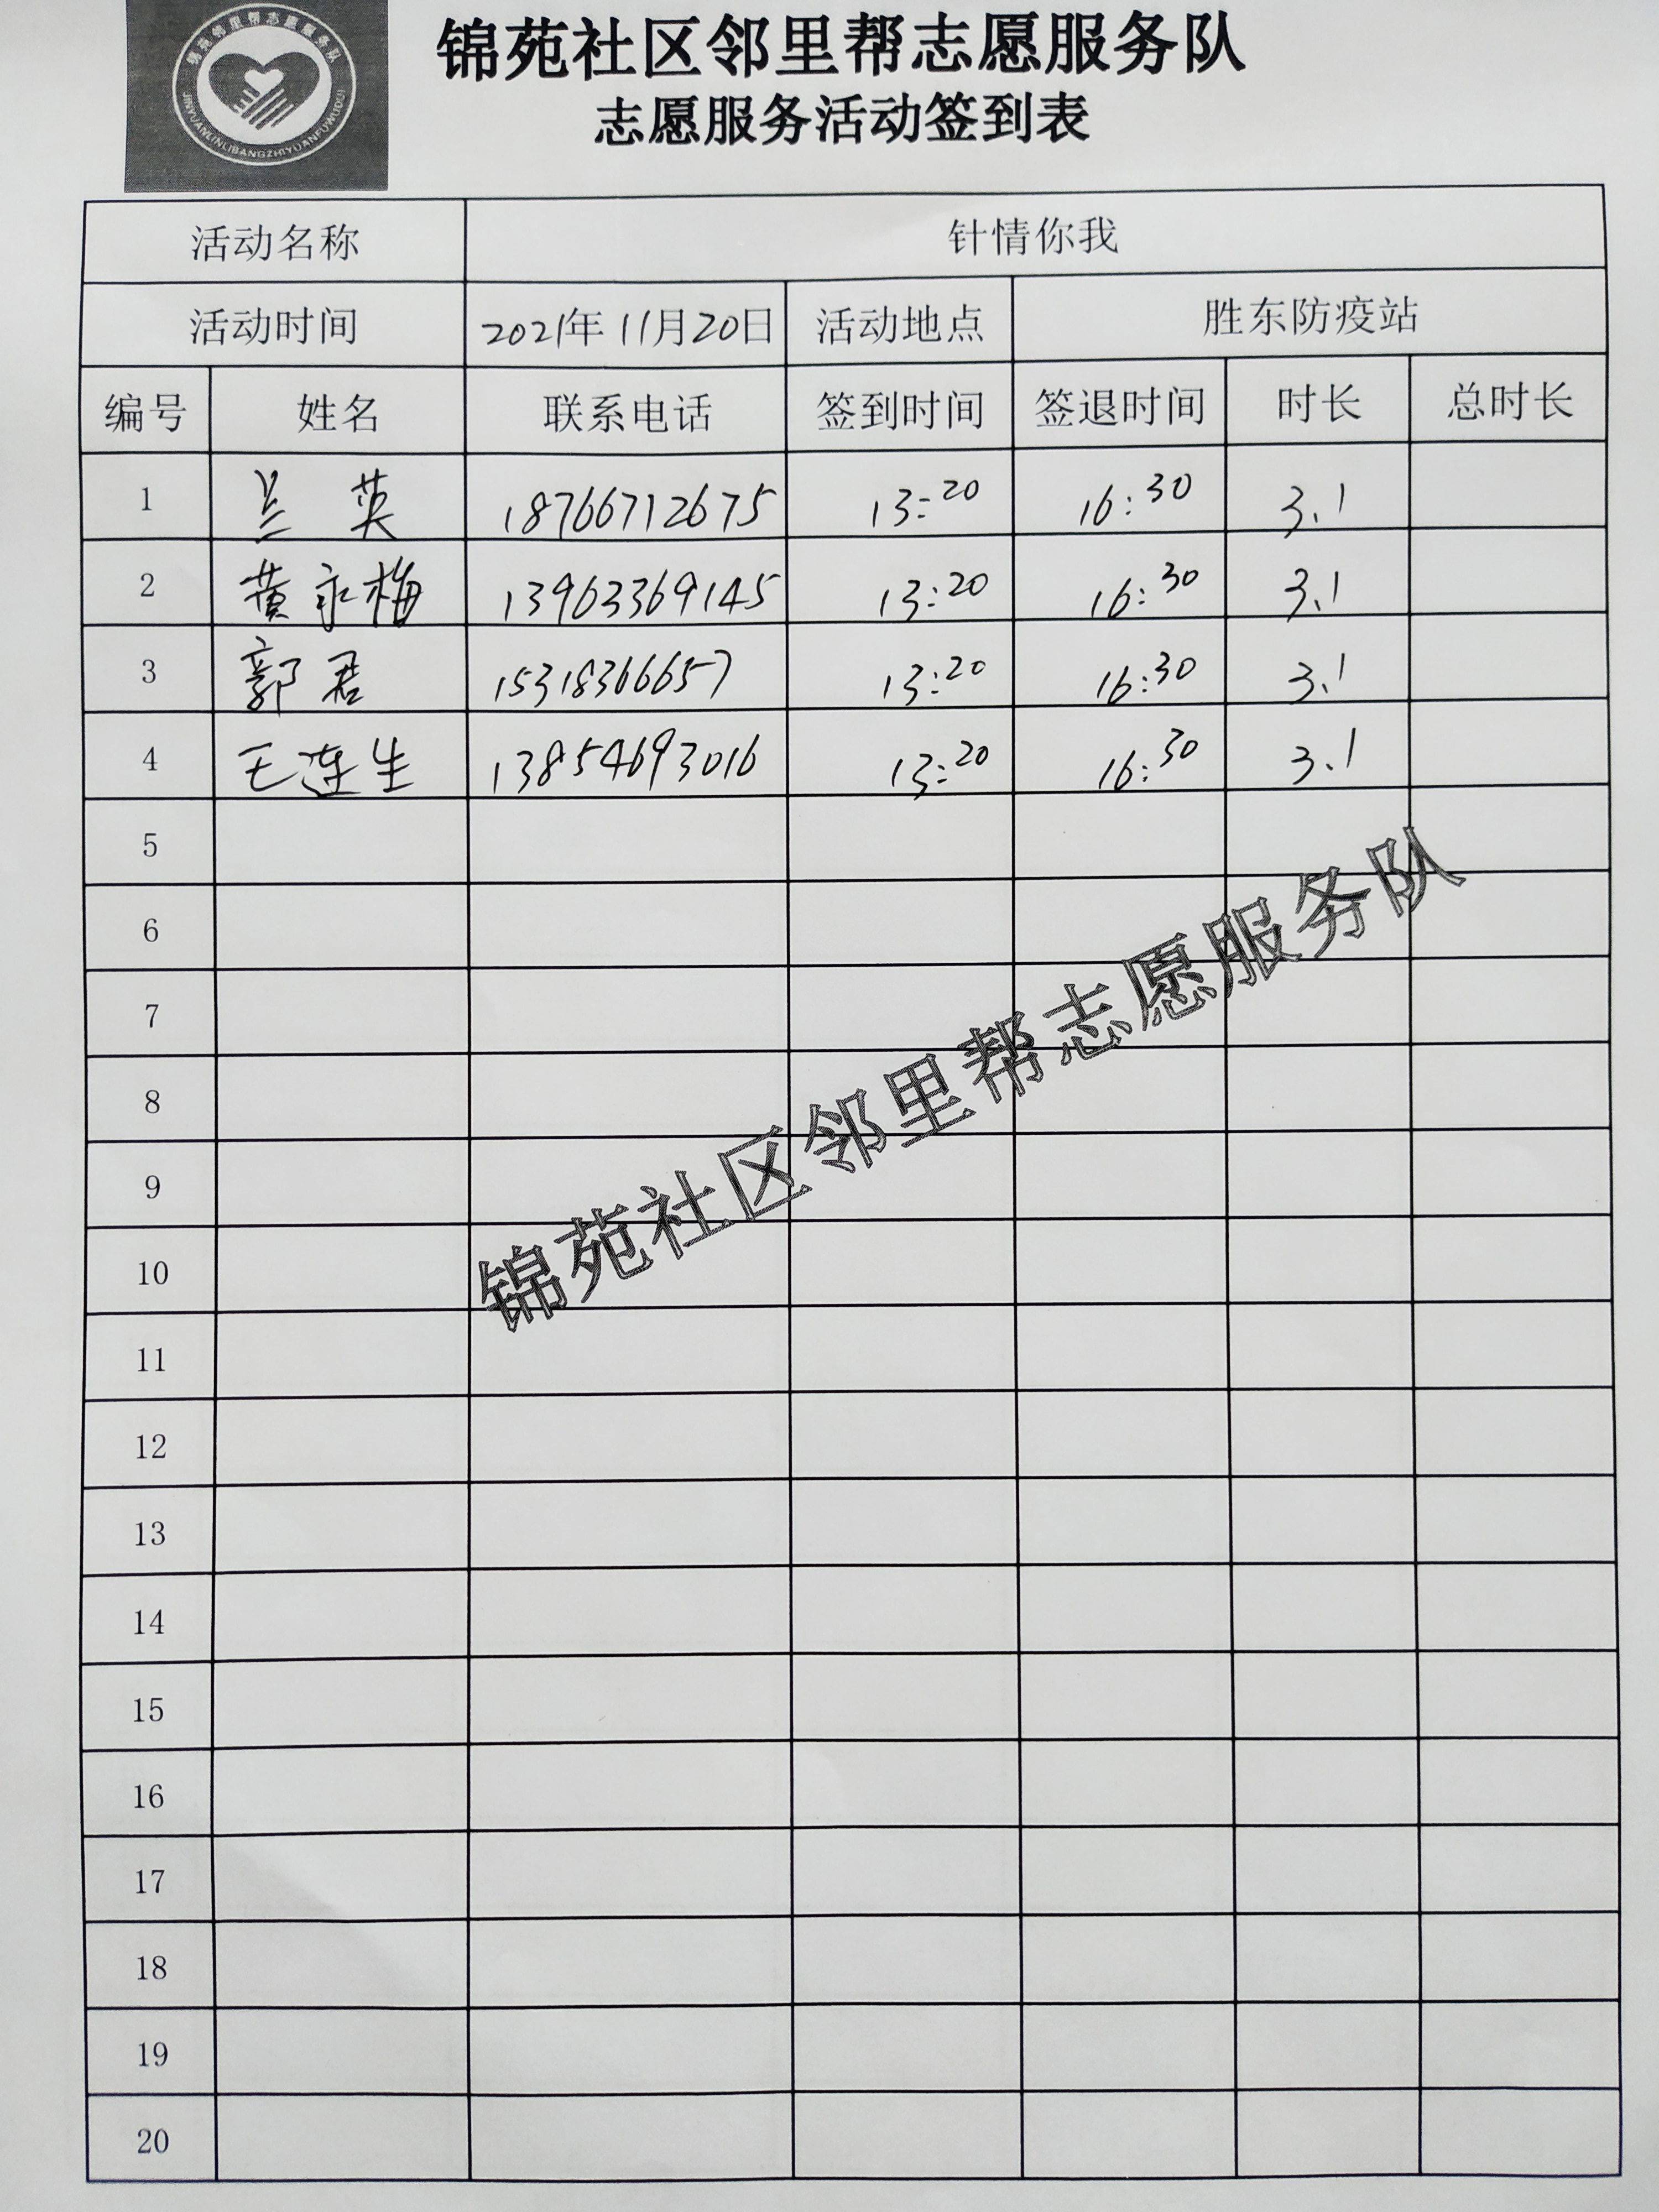 锦苑邻里帮志愿服务队
JINYUANLINLIBANGZHIYUANFUWUDUI
锦苑社区邻里帮志愿服务队
志愿服务活动签到表
活动名称 针情你我
活动时间 2021年11月20日 活动地点 胜东防疫站
编号 姓名 联系电话 签到时间 签退时间 时长 总时长
1 兰英 18766712675 13:20 16:30 3.1
2 黄永梅 13963369145 13:20 16:30 3.1
3 郭君 15318366657 13:20 16:30 3.1
4 王连生 13854693016 13:20 16:30 3.1
5
6
7
8
9
10
11
12
13
14
15
16
17
18
19
20
锦苑社区邻里帮志愿服务队